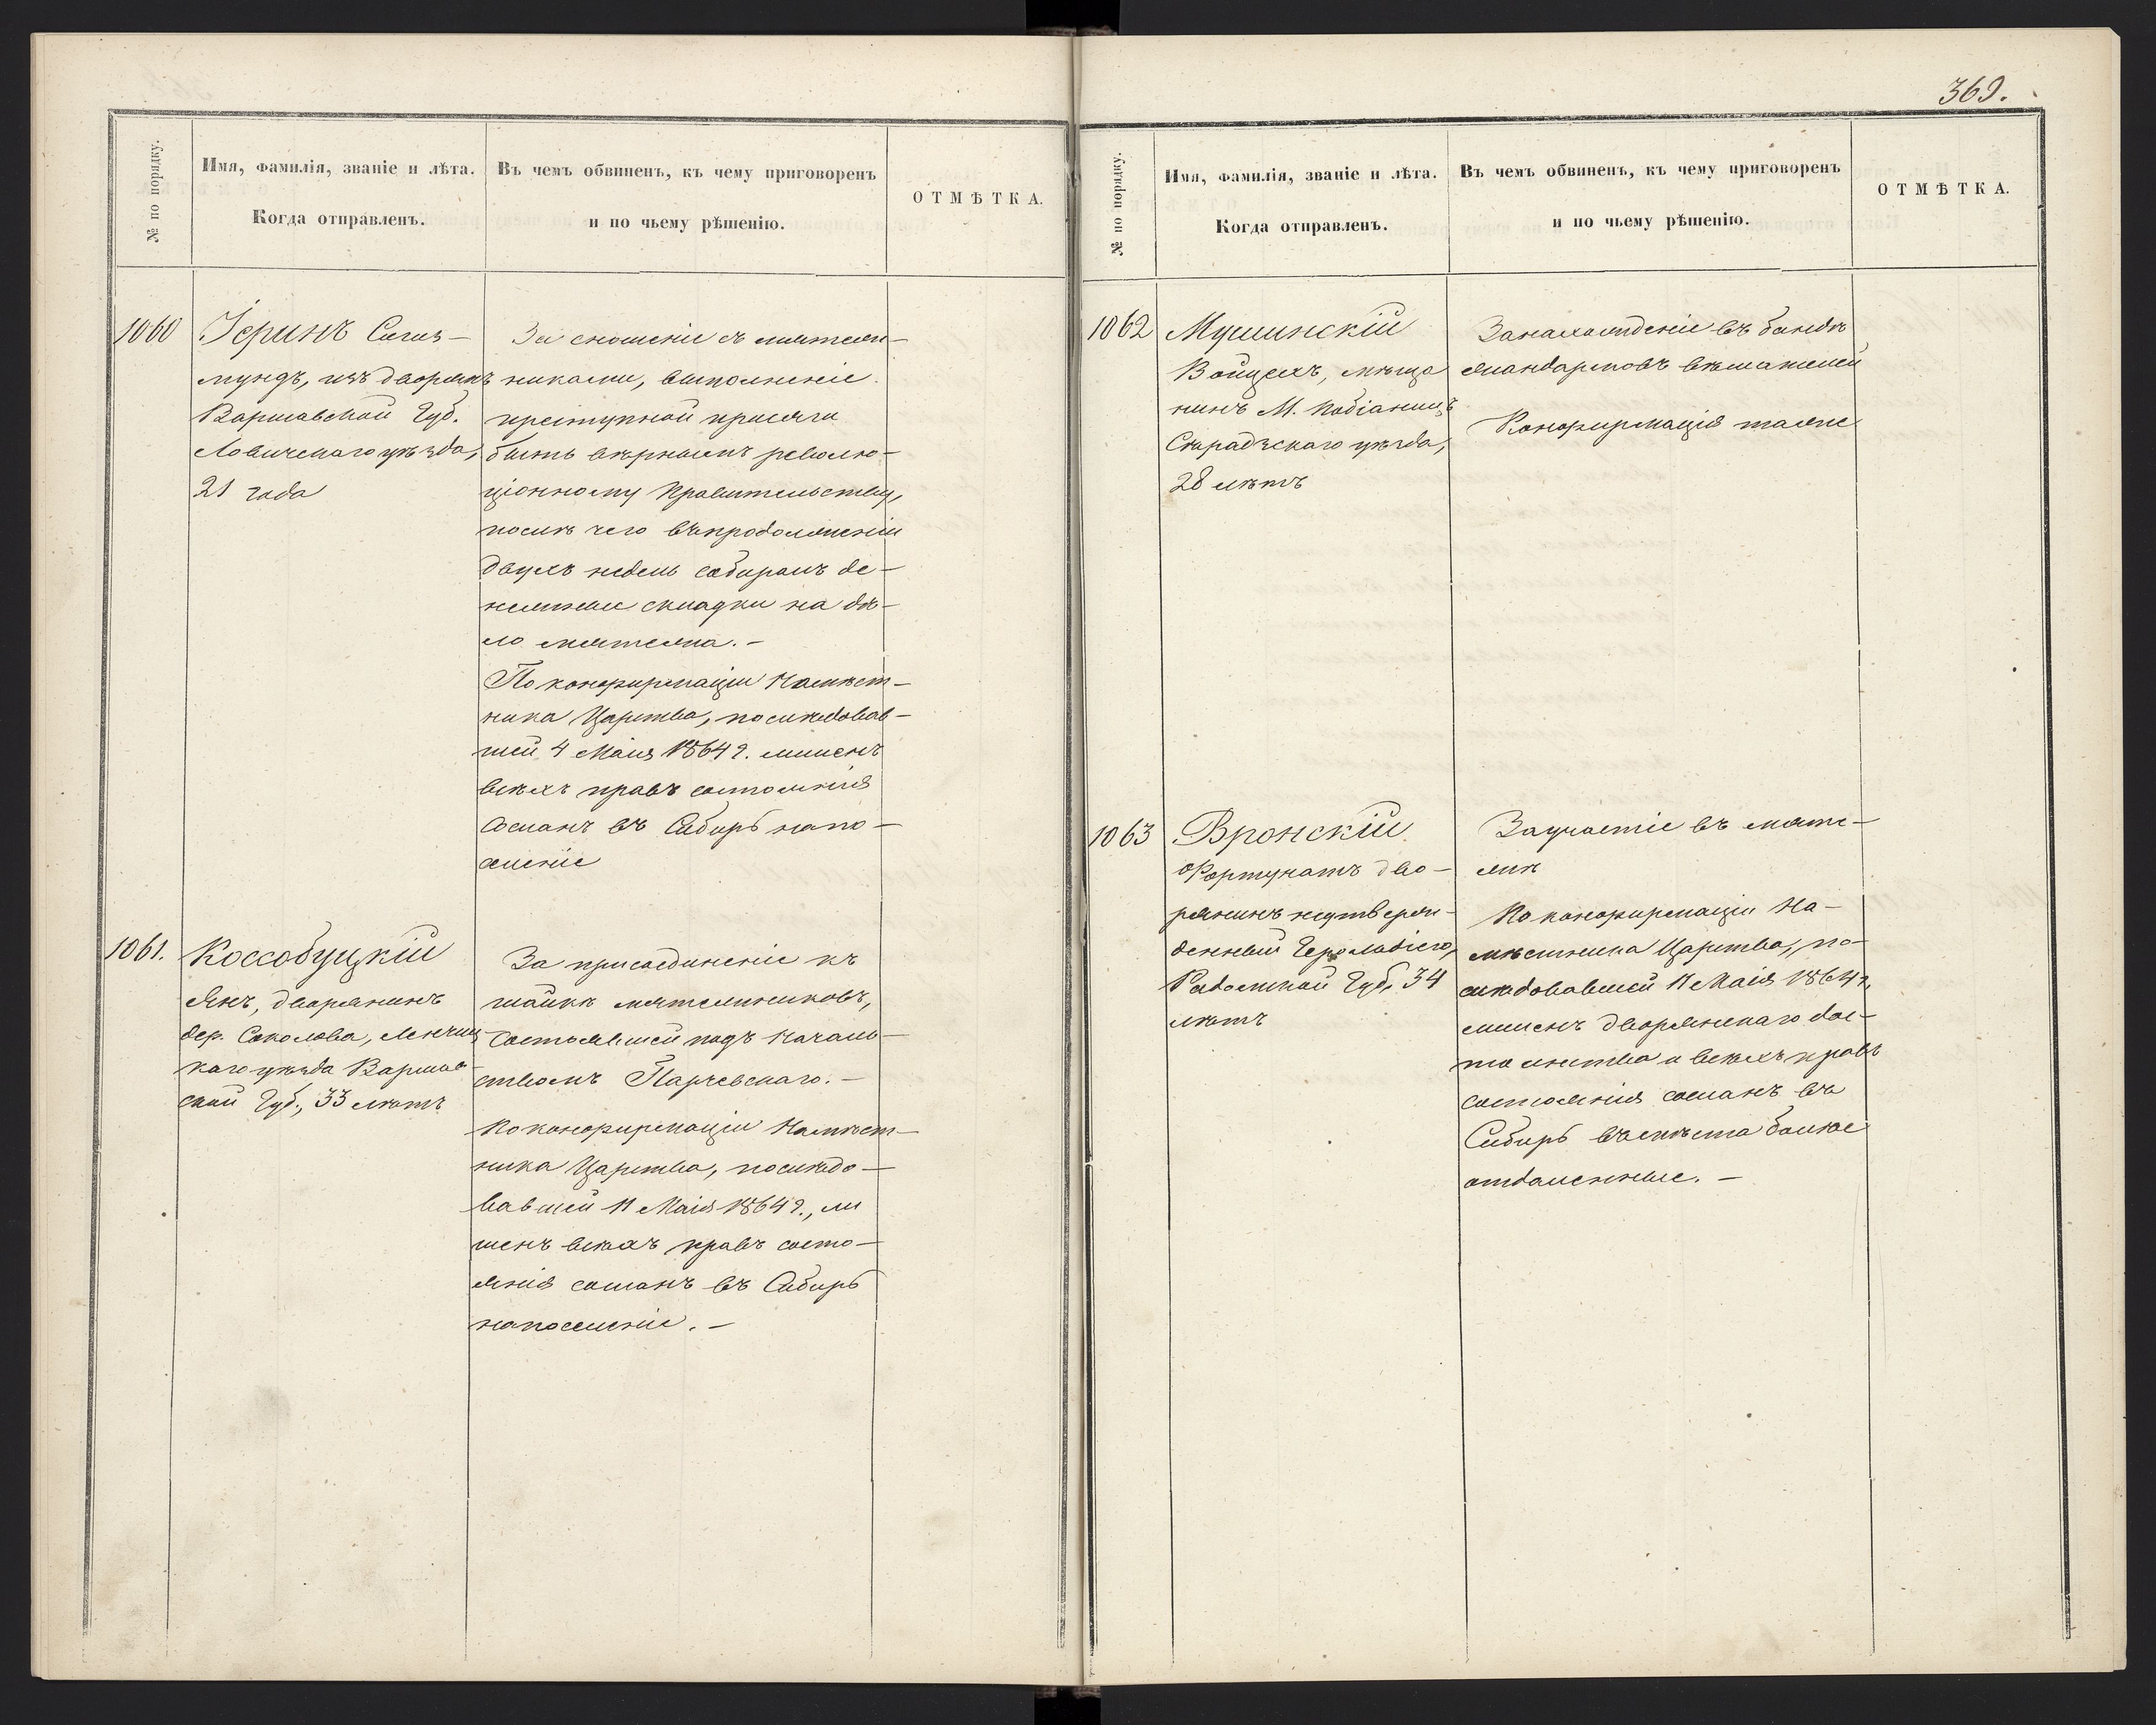 369.
№ по порядку.
Имя, фамилія, званіе и лѣта.
Когда отправленъ.
Въ чемъ обвиненъ, къ чему приговоренъ
и по чьему рѣшенію.
ОТМѢТКА.
1060
Іеринъ Сигиз-
мундъ, изъ дворянъ
Варшавской Губ.
Ловичскаго уѣзда,
21 года
За сношеніе съ мятеж-
никами, выполненіе
преступной присяги
быть вѣрнымъ револю-
ціонному Правительству,
послѣ чего въ продолженіи
двухъ недель собиралъ де-
нежные складки на дѣ-
ло мятежа.-
По конфирмаціи Намѣст-
ника Царства, послѣдовав-
шей 4 Маія 1864 г. лишенъ
всѣхъ правъ состоянія
сосланъ въ Сибирь на по-
селеніе
1061.
Коссобуцкій
Янъ, дворянинъ
дер. Соколова, Ленчиц-
каго уѣзда Варшав-
ской Губ., 33 лѣтъ
За присоединеніе къ
шайкѣ мятежниковъ,
состоявшей подъ началь-
ствомъ Парчевскаго.-
По конфирмаціи Намѣст-
ника Царства, послѣдо-
вавшей 11 Маія 1864 г., ли
шенъ всѣхъ правъ состо-
янія сосланъ въ Сибирь
на поселеніе.-
№ по порядку.
Имя, фамилія, званіе и лѣта.
Когда отправленъ.
Въ чемъ обвиненъ, къ чему приговоренъ
и по чьему рѣшенію.
ОТМѢТКА.
1062
Мушинскій
Войцехъ, мѣща
нинъ М. Пабіаницъ
Сѣрадзскаго уѣзда,
28 лѣтъ
За нахожденіе въ бандѣ
жандармовъ вѣшателей
Конфирмація таже
1063
Вронскій
Фортунатъ дво-
рянинъ неутверж-
денный Герольдіею,
Радомской Губ. 34
лѣтъ
За участіе въ мяте-
жѣ
По конфирмаціи На-
мѣстника Царства, по-
слѣдовавшей 11 Маія 1864 г.
лишенъ дворянскаго дос-
тоинства и всѣхъ правъ
состоянія сосланъ въ
Сибирь въ мѣста болѣе
отдаленные.-